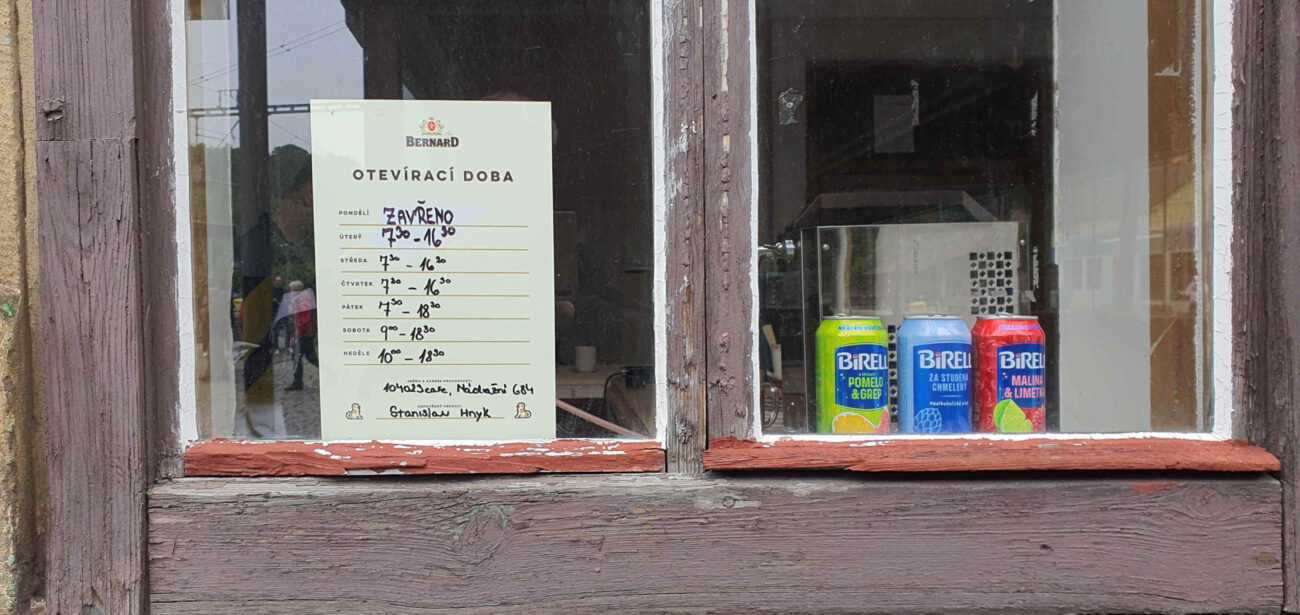 BERNARD
OTEVÍRACÍ DOBA
PONDĚLÍ ZAVŘENO
ÚTERÝ 7³⁰ - 16³⁰
STŘEDA 7³⁰ - 16³⁰
ČTVRTEK 7³⁰ - 16³⁰
PÁTEK 7³⁰ - 18³⁰
SOBOTA 9⁰⁰ - 18³⁰
NEDĚLE 10⁰⁰ - 18³⁰
JMÉNO A ADRESA PROVOZOVNY:
104023cafe, Nádražní 684
ODPOVĚDNÝ VEDOUCÍ:
Stanislav Hnyk
BIRELL
POMELO
& GREP
BIRELL
ZA STUDENA
CHMELENÝ
BIRELL
MALINA
& LIMETKA